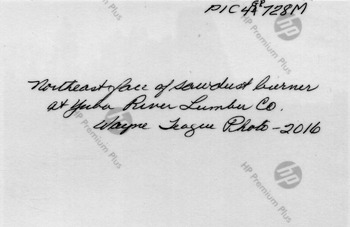 PIC 44728M
Northeast face of sawdust burner
at Yuba River Lumber Co.
Wayne Teague Photo - 2016
HP Premium Plus
HP Premium Plus
HP Premium Plus
HP Premium Plus